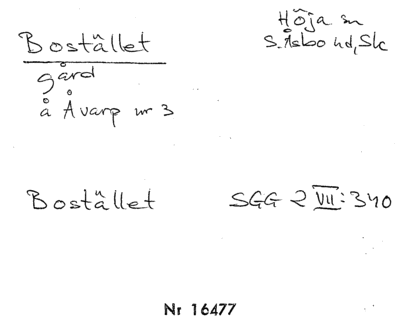 Bostället
Höja sn
S. Åsbo hd, Sk
gård
å Åvarp nr 3
Bostället SGG 2 VII:340
Nr 16477